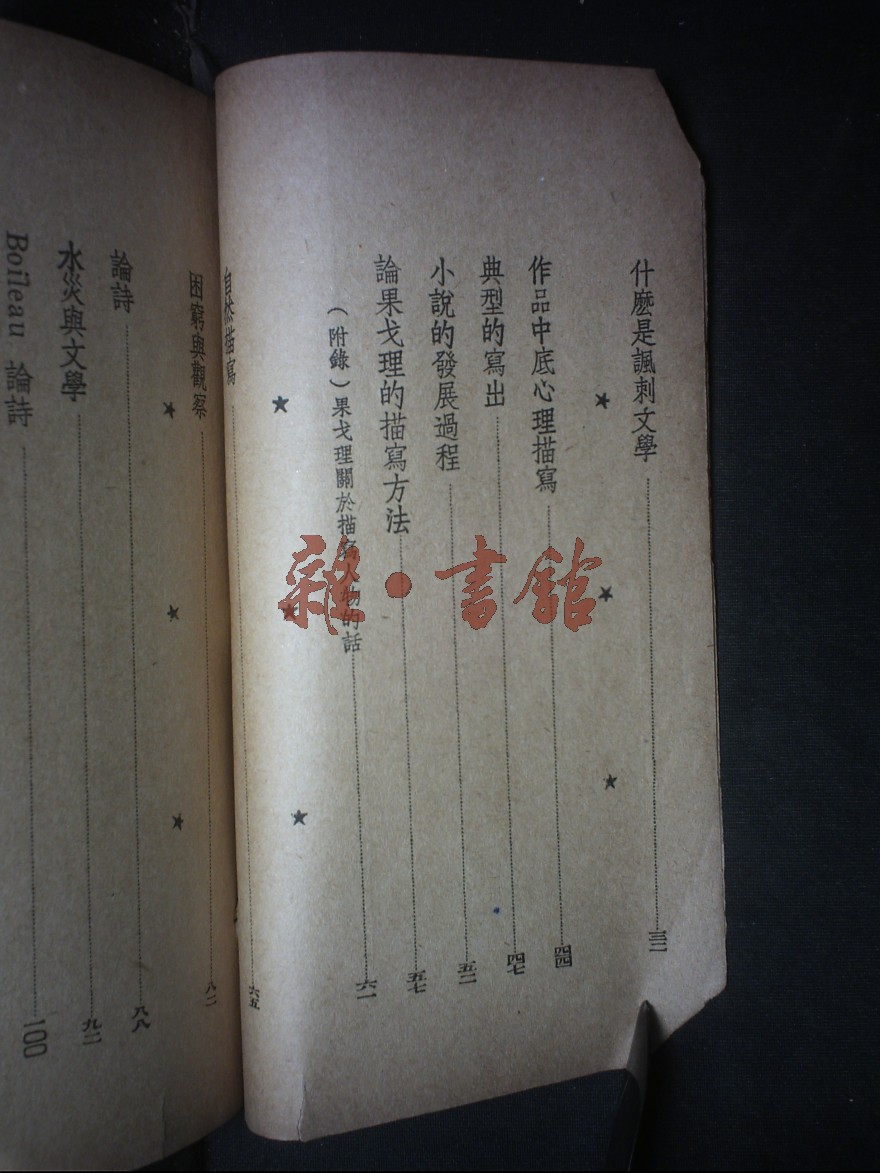 什麽是諷刺文學 三二
★ ★ ★
作品中底心理描寫 四四
典型的寫出 四七
小說的發展過程 五二
論果戈理的描寫方法 五七
（附錄）果戈理關於描寫人物的話 六一
★ ★ ★
自然描寫 六五
困窮與觀察 八二
★ ★ ★
論詩 八八
水災與文學 九二
Boileau 論詩 一〇〇
雜·書館